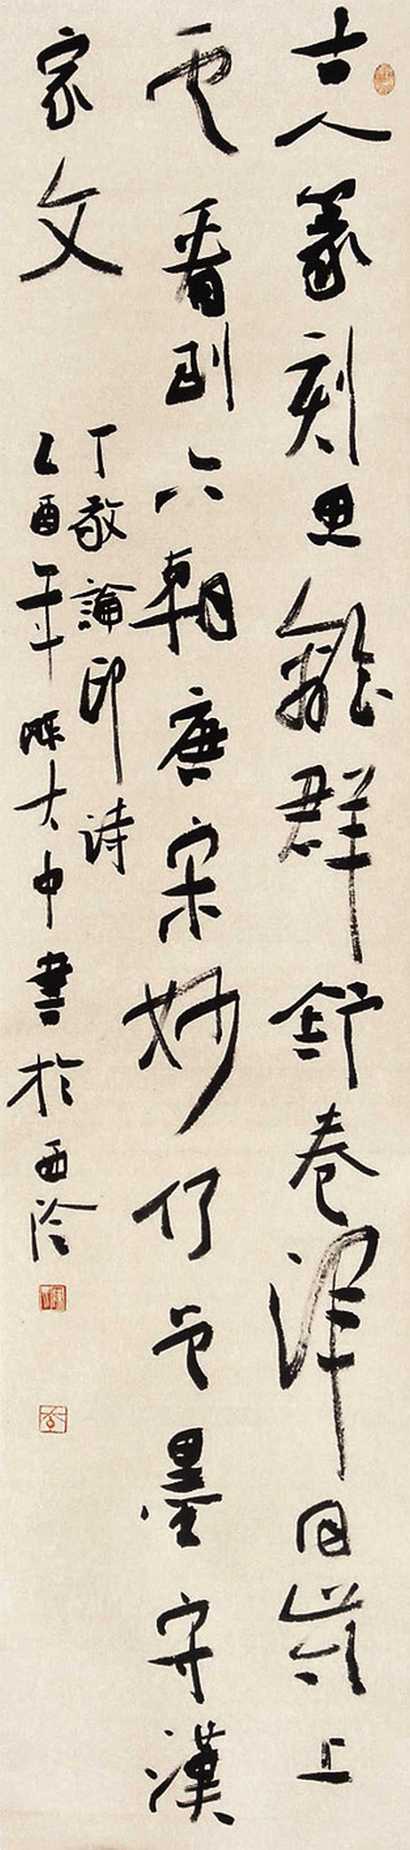 古人篆刻思離群舒卷渾同嶺上
雲看到六朝唐宋妙何曾墨守漢
家文
丁敬論印诗
乙酉年 大中書於西泠